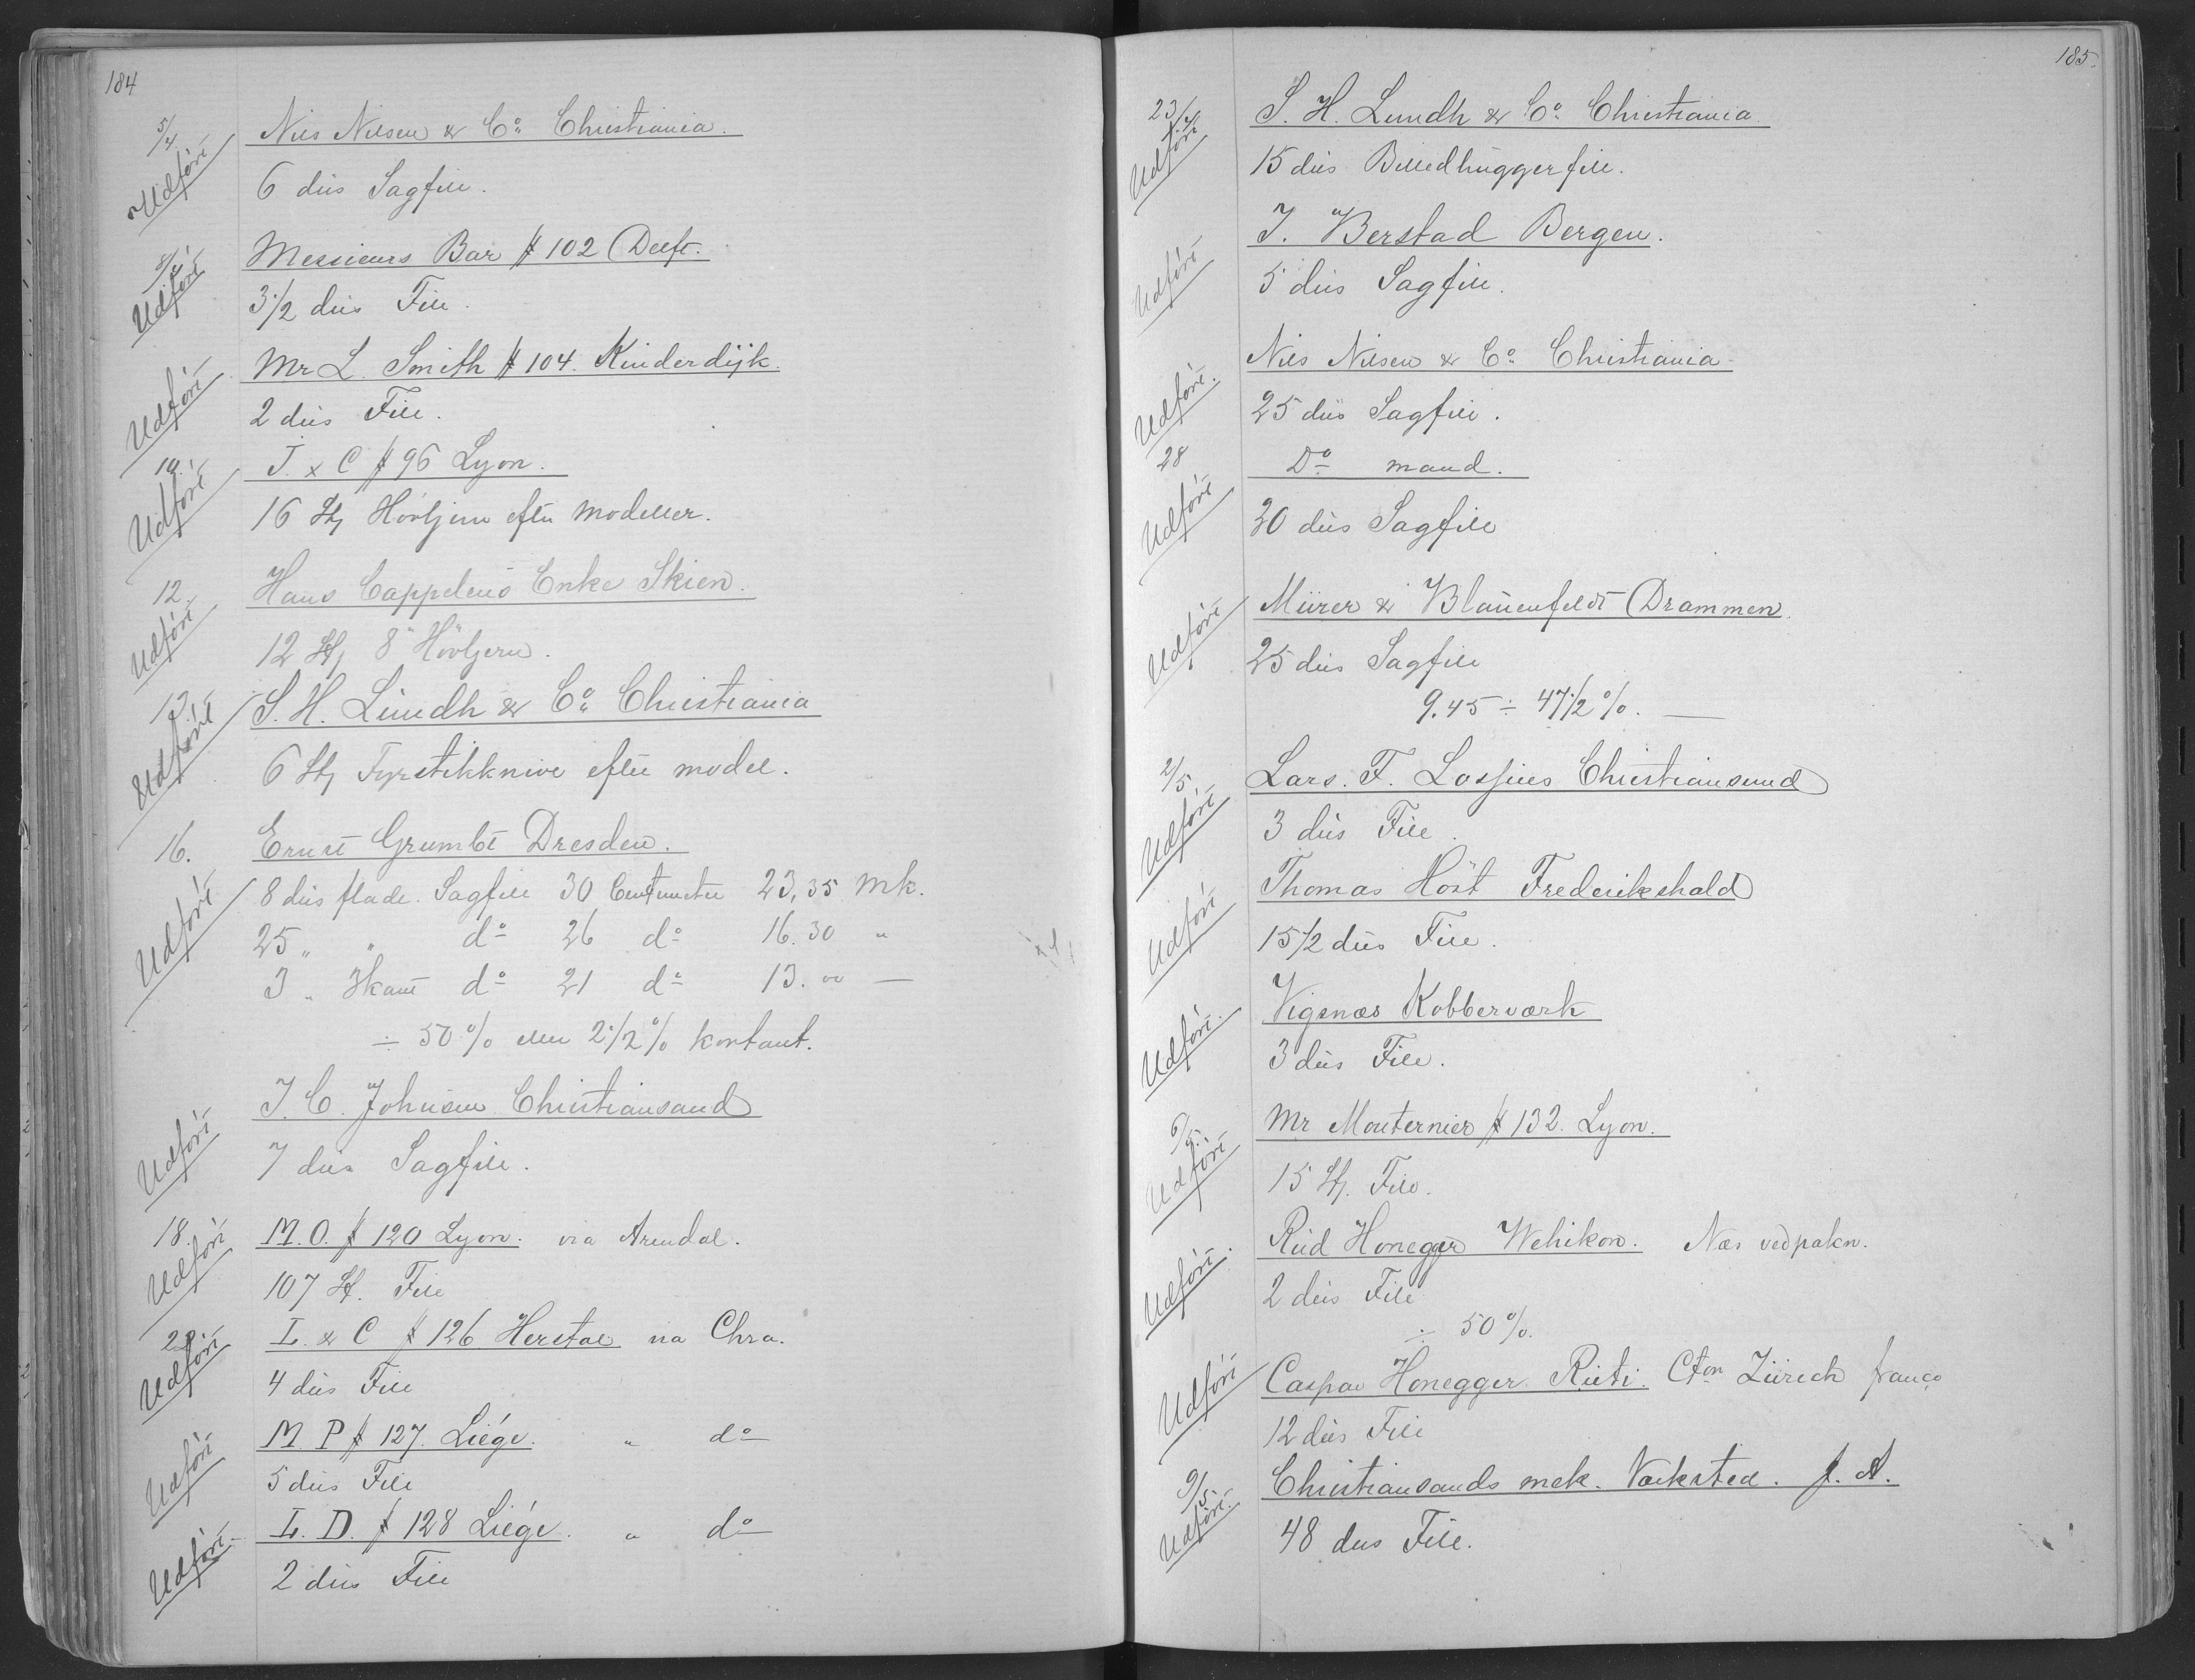 184
5/4 Nils Nilsen & Co. Christiania.
Udført
6 dus Sagfile.
8/4 Messieurs Bar # 102 Delft.
Udført
3 1/2 dus File.
Mr L. Smith # 104. Kinderdijk.
Udført
2 dus File.
10. J. & C # 96 Lyon.
Udført
16 Stk Hövljern efter modeller.
12. Hans Cappelens Enke Skien.
Udført
12 Stk 8" Hövljern.
13. S. H. Lundh & Co. Christiania
Udført
6 Stk Fyrstikknive efter model.
16. Ernst Grumbt Dresden.
8 dus flade. Sagfile 30 Centimeter 23,35 Mk.
Udført
25 " " do 26 do 16.30 "
3 " 3kant do 21 do 13.00 —
÷ 50 % eller 2 1/2 % kontant.
J. C. Johnsen Christiansand
Udført
7 dus Sagfile.
18. M. O. # 120 Lyon. via Arendal.
Udført
107 St. File
22. L. & C # 126 Herstal via Chra.
Udført
4 dus File
M. P # 127. Liége. " do
Udført
5 dus File
L. D. # 128 Liége. " do
Udført
2 dus File
185.
23/4 S. H. Lundh & Co. Christiania.
Udført
15 dus Billedhuggerfile.
J. Berstad Bergen.
Udført
5 dus Sagfile.
Nils Nilsen & Co. Christiania.
Udført.
25 dus Sagfile.
28 Do mand.
Udført
30 dus Sagfile
Mürer & Blauenfeldt Drammen.
Udført
25 dus Sagfile
9.45 ÷ 47 1/2 %. —
2/5 Lars. F. Lossius Christiansund
Udført
3 dus File.
Thomas Höst Frederikshald
Udført
15 1/2 dus File.
Vigsnæs Kobberværk
Udført.
3 dus File.
6/5. Mr Mouternier # 132. Lyon.
Udført
15 St. File.
Rüd Honegger Wehikon. Næs vedpakn.
Udført.
2 dus File
÷ 50 %.
Caspar Honegger Rüti. Cton Zürich franço
Udført
12 dus File
9/5. Christiansands mek. Værksted. J. A.
Udført.
48 dus File.